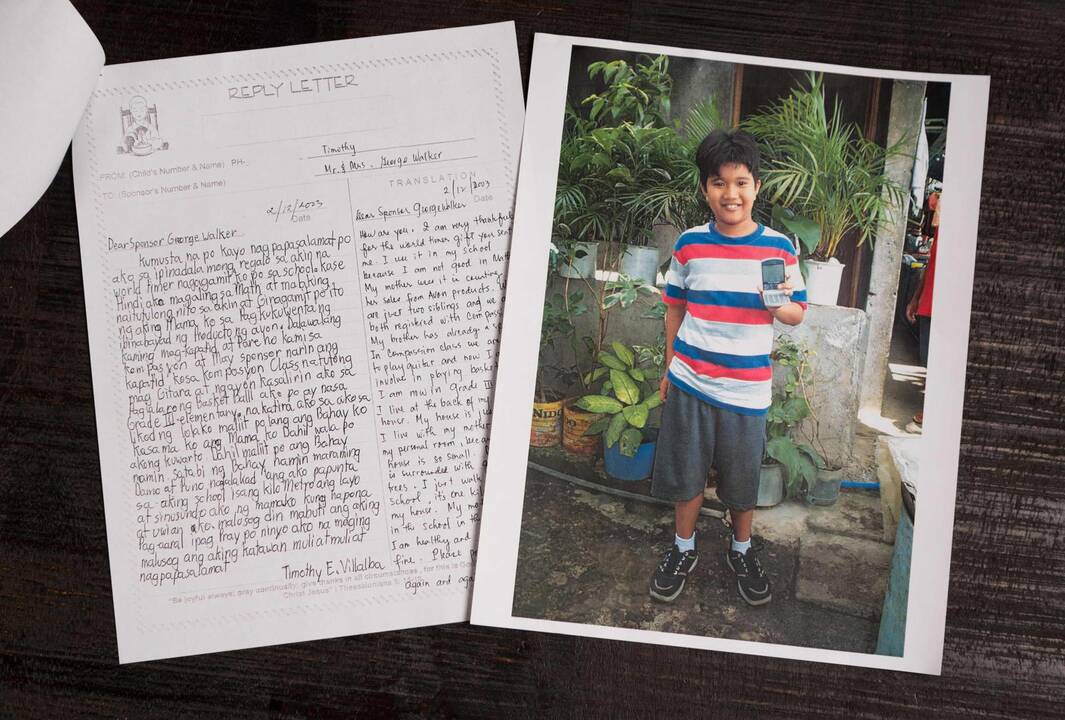 REPLY LETTER
FROM: (Child's Number & Name) PH-
Timothy
TO: (Sponsor's Number & Name)
Mr. & Mrs. George Walker
2/12/2003
Date
Dear Sponsor George Walker
kumusta na po kayo nag papasalamat po
ako sa ipinadala mong regalo sa akin na
world timer nagagamit ko po sa school. kase
Hindi ako magaling sa Math at malaking
naitutulong nito sa akin at Ginagamit po ito
ng aking Mama ko sa Pag kukuwenta ng
ibinabayad ng Producto ng avon. Dalawa lang
kaming mag-kapatid at Pare ho kami sa
kompasyon at May sponsor narin ang
kapatid kosa komposyon Class natutong
mag Gitara at ngayon kasalirin ako sa
Pag lalaro ng basket Ball ako po ay nasa
Grade III elementary. nakatira ako sa
likod ng lolako maliit po lang ang Bahay ko
kasama ko ang Mama ko Dahil wala po
akong kuwarto. Dahil maliit po ang Bahay
namin satabi ng Bahay namin maraming
Damo at Puno naglalakad lang ako papunta
sa aking school isang kilo Metro ang layo
at sinusundo ako ng mamako kung hapon
at uwian ako malosog din mabuti ang aking
Pag aaral ipag Pray po ninyo ako na maging
malusog ang aking katawan muli at muli at
nagpapasalamat
Timothy E. Villalba
TRANSLATION
2/12/2003
Date
Dear Sponsor George Walker
How are you. I am very thankful
for the world timer gift you sent
me. I use it in my school
because I am not good in Math
My mother uses it in counting
her sales from Avon products. We
are just two siblings and we
both registered with Compass
My brother has already a
In Compassion class we are
to play guitar and now I
involve in playing bask
I am now in Grade III
I live at the back of my
house. My house is jus
I live with my mother
my personal room, beca
house is so small.
is surrounded with
trees. I just walk
School, its one kil
my house. My mo
in the school in th
I am healthy and
fine. Please
again and aga
"Be joyful always; pray continually; give thanks in all circumstances, for this is Go
Christ Jesus" I Thessalonians 5:
NIDO